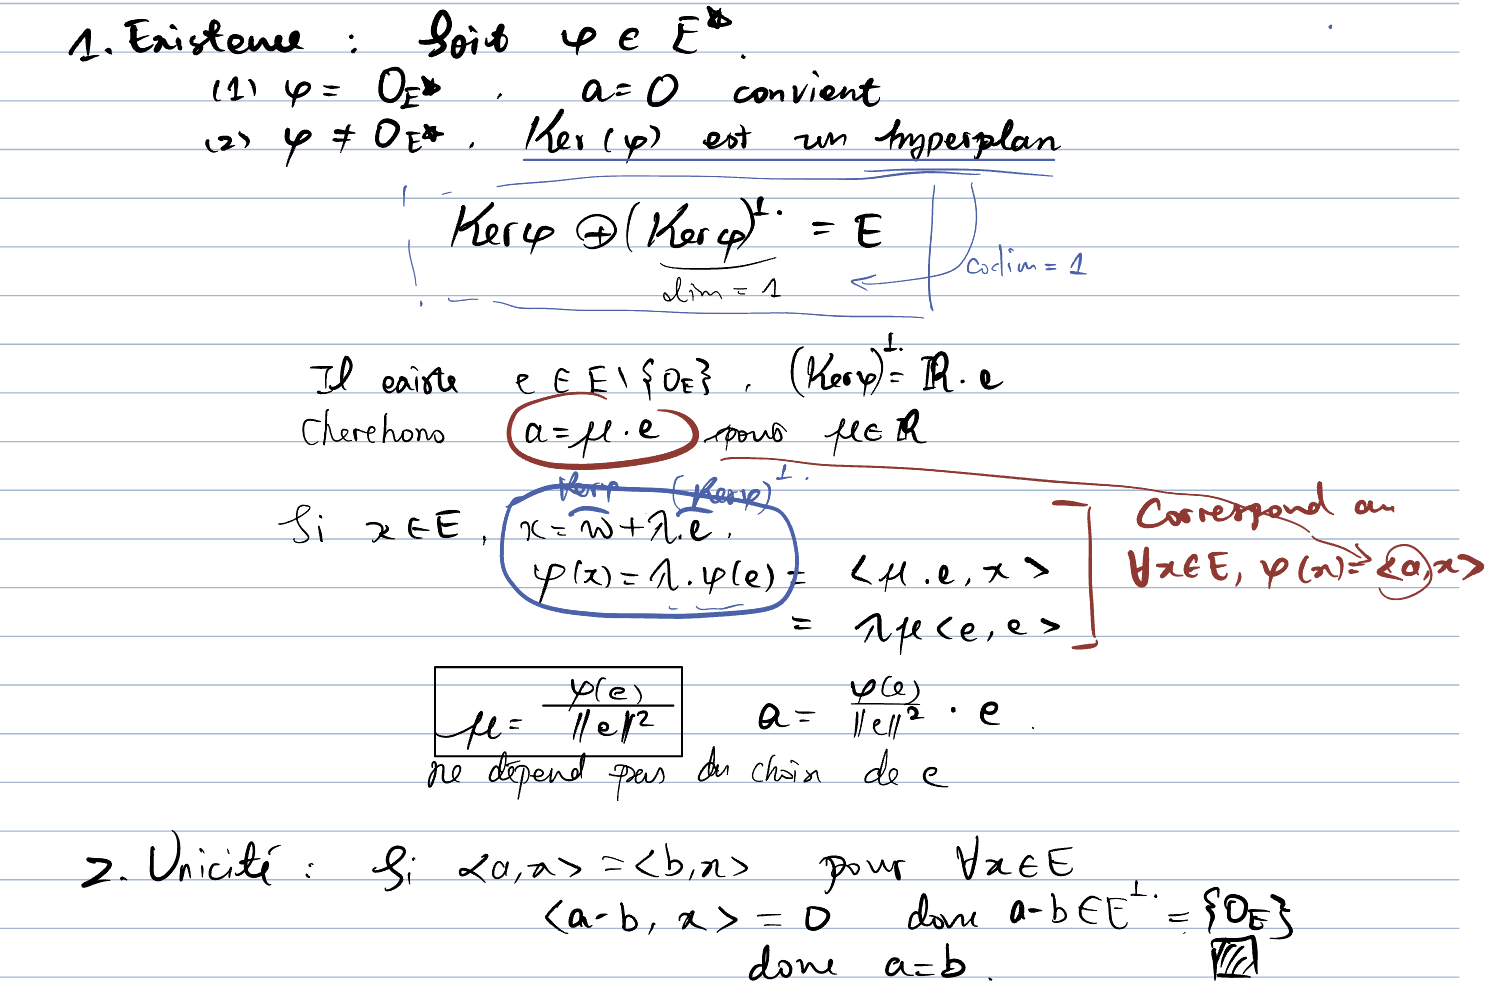 1. Existence : Soit φ ∈ E*.
(1) φ = 0_E* . a = 0 convient
(2) φ ≠ 0_E* . Ker(φ) est un hyperplan
Kerφ ⊕ (Kerφ)^⊥ = E
dim = 1
codim = 1
Il existe e ∈ E \ {0_E} , (Kerφ)^⊥ = ℝ · e
Cherchons a = μ · e pour μ ∈ ℝ
Kerφ (Kerφ)^⊥
Si x ∈ E , x = w + λ.e .
φ(x) = λ . φ(e) = <μ . e, x>
= λμ <e, e>
Correspond au
∀x ∈ E, φ(x) = <a, x>
μ = φ(e) / ‖e‖² a = φ(e) / ‖e‖² · e .
ne dépend pas du choix de e
2. Unicité : Si <a, x> = <b, x> pour ∀x ∈ E
<a - b, x> = 0 donc a - b ∈ E^⊥ = {0_E}
donc a = b .